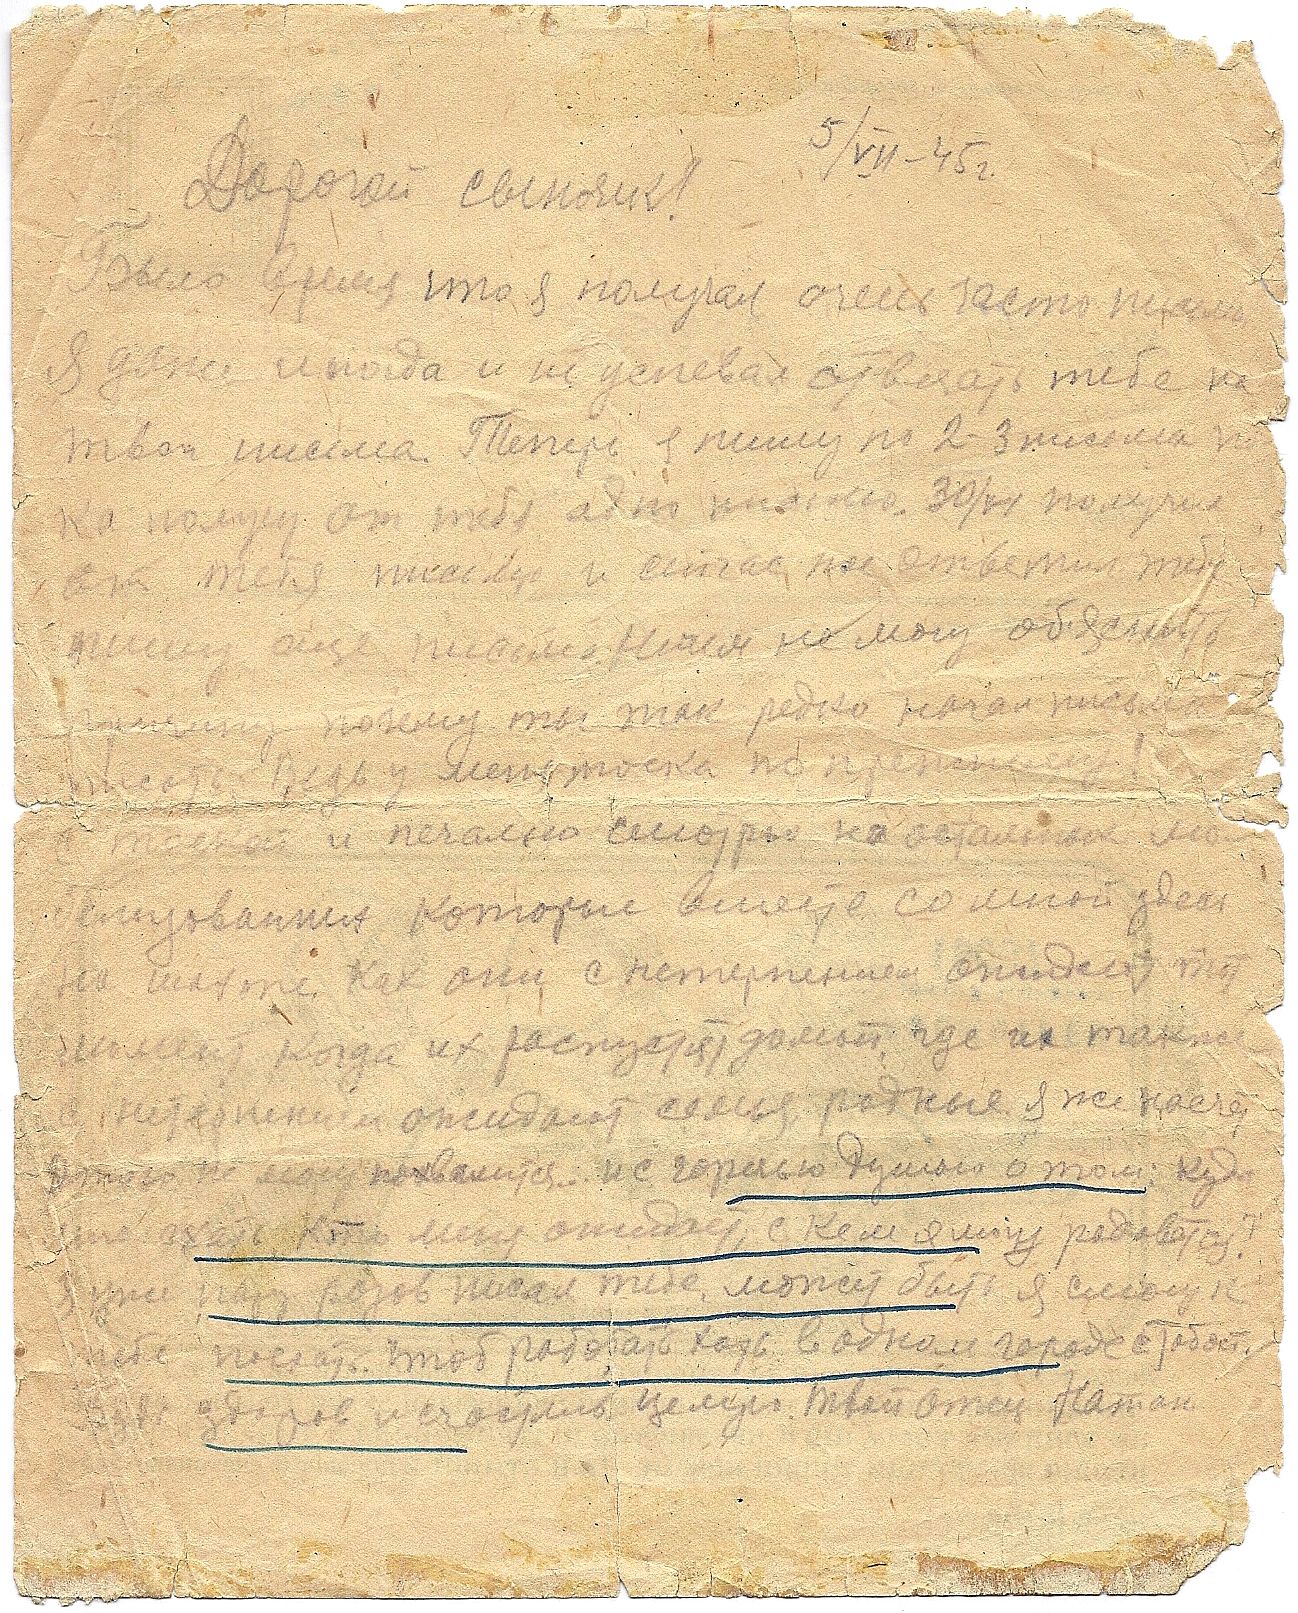 5/VII-45г.
Дорогой сыночик!
Было время что я получал очень часто письма
я даже иногда и не успевал отвечать тебе на
твои письма. Теперь я пишу по 2-3 письма по
ка получу от тебя одно письмо. 30/VI получил
от тебя письмо и сейчас же ответил тебе
пишу еще письмо. Ничем не могу об'яснить
причину почему ты так редко начал письма
писать. Ведь у меня тоска по прежнему!
С тоской и печалью смотрю на остальных мо
билизованных которые вместе со мной здесь
на шахте. Как они с нетерпением ожидают тот
момент когда их распустят домой, где их также
с нетерпением ожидают семья родные. Я же насчет
этого не могу похвалится.. и с горечью думаю о том: куда
мне ехать кто меня ожидает, с кем я могу радоватся?
Я уже пару разов писал тебе, может быть я смогу к
тебе поехать. Чтоб работать хоть в одном городе с тобой.
Будь здоров и счастлив целую. Твой отец Натан